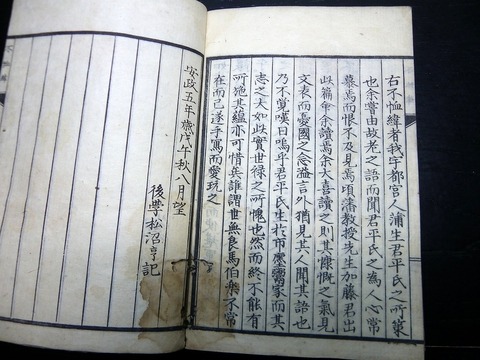 右不恤緯者我宇都宮人蒲生君平氏之所策
也余嘗由故老之語而聞君平氏之為人心常
慕焉而恨不及見焉頃藩教授先生加藤君出
此篇令余讀焉余大喜讀之則其慷慨之氣見
文表而憂國之念溢言外猶見其人聞其語也
乃不覚嘆曰嗚乎君平氏生於市廛鬻家而其
志之大如此實世禄之所愧也然而終不能有
所施其蘊亦可惜矣誰謂世無良馬伯樂不常
在而已遂手寫而愛玩之
安政五年歳戊午秋八月望
後學松沼亨記